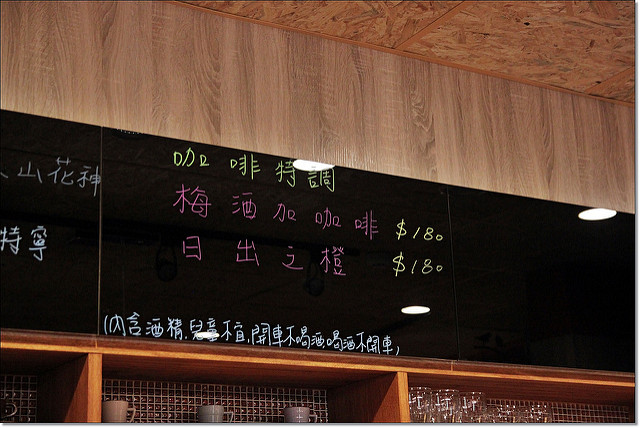 咖啡特調
山花神
梅酒加咖啡 $180
特寧
日出之橙 $180
(內含酒精.兒童不宜.開車不喝酒.喝酒不開車)